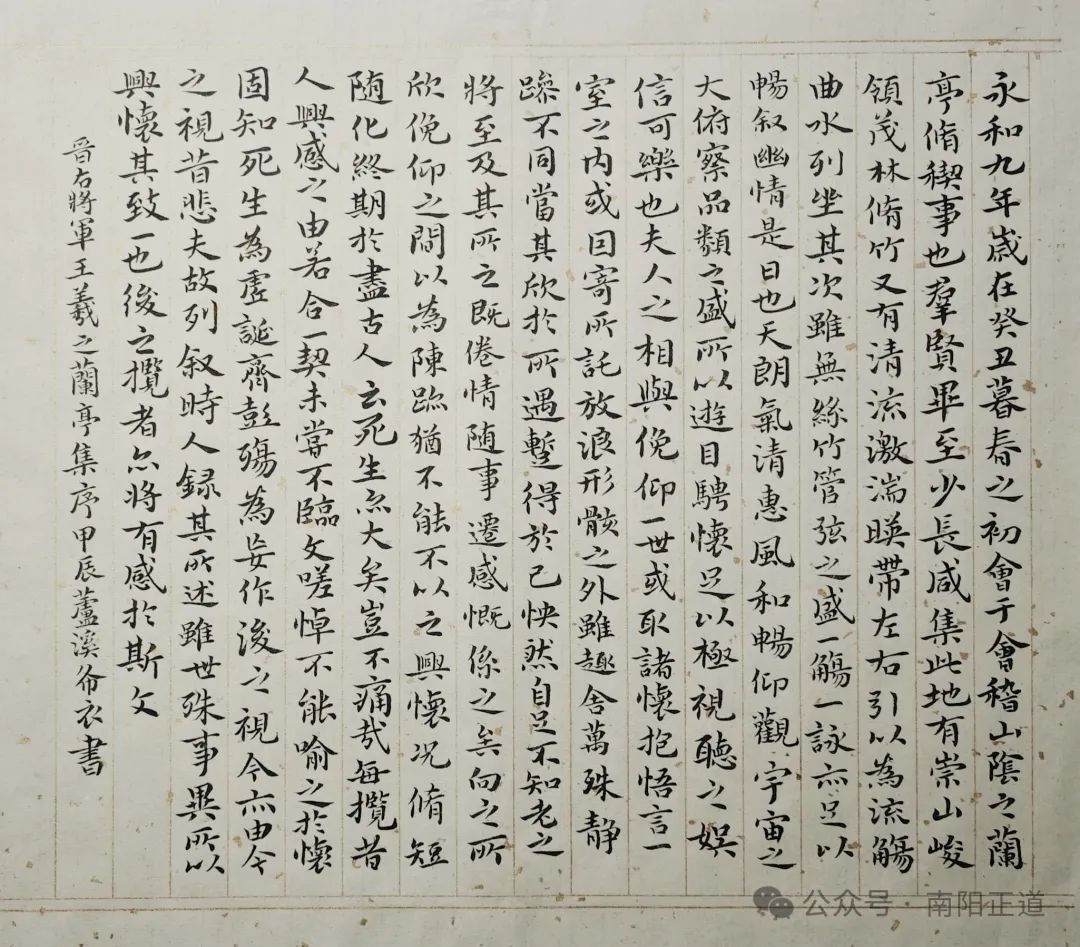 永和九年歲在癸丑暮春之初會于會稽山陰之蘭
亭脩稧事也羣賢畢至少長咸集此地有崇山峻
領茂林脩竹又有清流激湍暎帶左右引以為流觴
曲水列坐其次雖無絲竹管弦之盛一觴一詠亦足以
暢叙幽情是日也天朗氣清惠風和暢仰觀宇宙之
大俯察品類之盛所以遊目騁懷足以極視聽之娛
信可樂也夫人之相與俛仰一世或取諸懷抱悟言一
室之内或因寄所託放浪形骸之外雖趣舍萬殊静
躁不同當其欣於所遇蹔得於己怏然自足不知老之
將至及其所之既倦情隨事遷感慨係之矣向之所
欣俛仰之間以為陳跡猶不能不以之興懷况脩短
随化終期於盡古人云死生亦大矣豈不痛哉每攬昔
人興感之由若合一契未嘗不臨文嗟悼不能喻之於懷
固知死生為虚誕齊彭殤為妄作後之視今亦由今
之視昔悲夫故列叙時人録其所述雖世殊事異所以
興懷其致一也後之攬者亦將有感於斯文
晉右將軍王羲之蘭亭集序甲辰蘆溪布衣書
公众号·南阳正道